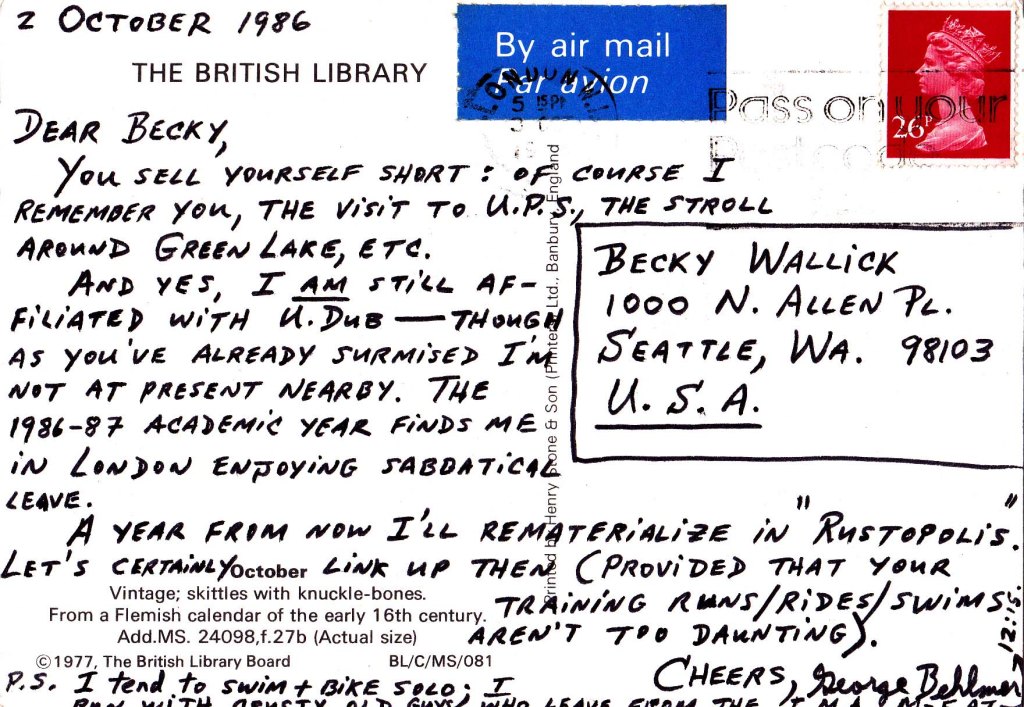 2 OCTOBER 1986
THE BRITISH LIBRARY
By air mail
Par avion
LONDON W.1
5 15 PM
Pass on your
Postcode
26P
DEAR BECKY,
YOU SELL YOURSELF SHORT: OF COURSE I
REMEMBER YOU, THE VISIT TO U.P.S., THE STROLL
AROUND GREEN LAKE, ETC.
AND YES, I AM STILL AF-
FILIATED WITH U. DUB — THOUGH
AS YOU'VE ALREADY SURMISED I'M
NOT AT PRESENT NEARBY. THE
1986-87 ACADEMIC YEAR FINDS ME
IN LONDON ENJOYING SABBATICAL
LEAVE.
A YEAR FROM NOW I'LL REMATERIALIZE IN "RUSTOPOLIS."
LET'S CERTAINLY LINK UP THEN (PROVIDED THAT YOUR
TRAINING RUNS/RIDES/SWIMS
AREN'T TOO DAUNTING).
CHEERS, George Behlmer
BECKY WALLICK
1000 N. ALLEN PL.
SEATTLE, WA. 98103
U.S.A.
Printed by Henry Stone & Son (Printers) Ltd., Banbury, England
October
Vintage; skittles with knuckle-bones.
From a Flemish calendar of the early 16th century.
Add.MS. 24098,f.27b (Actual size)
©1977, The British Library Board BL/C/MS/081
P.S. I tend to SWIM + BIKE SOLO; I
RUN WITH CRUSTY OLD GUYS WHO LEAVE FROM THE Y.M.A. AT
12:15.